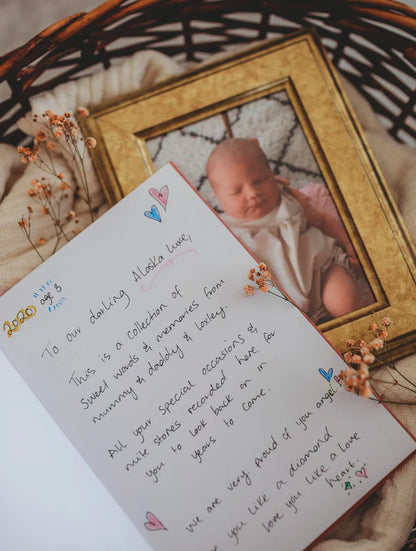 2020
age 3
To our darling Alaska luxe,
This is a collection of
Sweet words & memories from
mummy & daddy & loxley.
All your special occasions &
mile stones recorded here for
you to look back on in
years to come.
We are very proud of you angel
you like a diamond
love you like a love
heart.